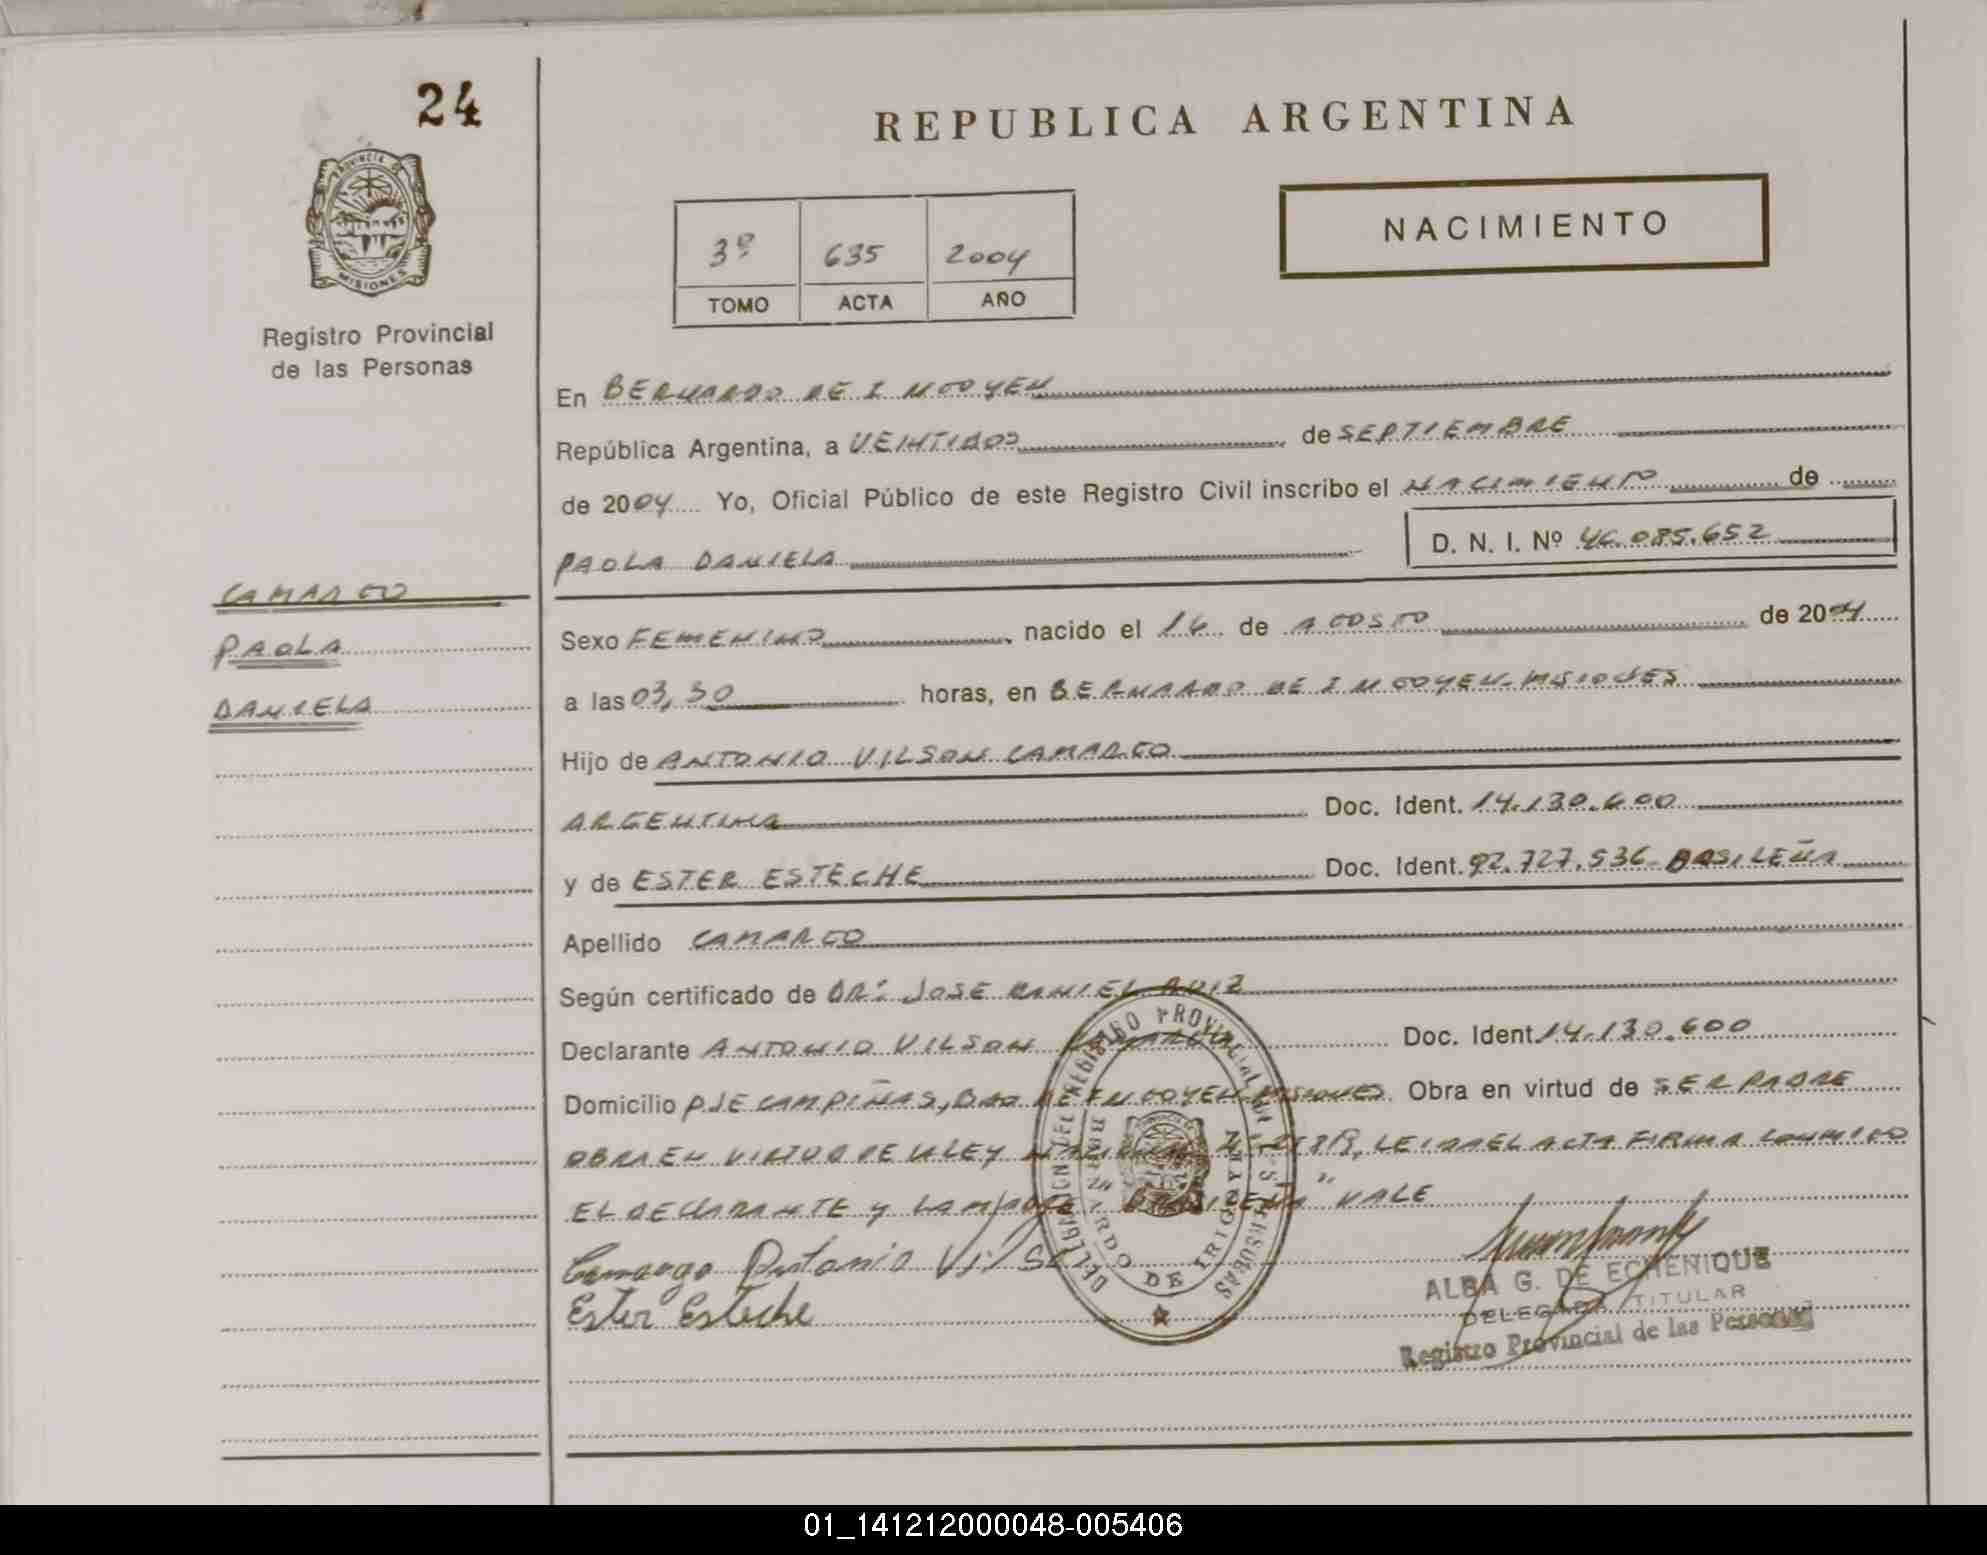 24
REPUBLICA ARGENTINA
PROVINCIA DE
MISIONES
Registro Provincial
de las Personas
NACIMIENTO
3º 635 2004
TOMO ACTA AÑO
En BERNARDO DE IRIGOYEN
República Argentina, a VEINTIDOS de SEPTIEMBRE
de 2004 Yo, Oficial Público de este Registro Civil inscribo el NACIMIENTO de
PAOLA DANIELA D. N. I. Nº 46.085.652
CAMARGO
PAOLA
DANIELA
Sexo FEMENINO nacido el 16 de AGOSTO de 2004
a las 03,30 horas, en BERNARDO DE IRIGOYEN-MISIONES
Hijo de ANTONIO VILSON CAMARGO
ARGENTINA Doc. Ident. 14.130.600
y de ESTER ESTECHE Doc. Ident. 92.727.536 BASILEÑA
Apellido CAMARGO
Según certificado de DR: JOSE DANIEL RUIZ
Declarante ANTONIO VILSON CAMARGO Doc. Ident. 14.130.600
Domicilio PJE CAMPIÑAS, BDO DE IRIGOYEN MISIONES Obra en virtud de SER PADRE
OBRA EN VIRTUD DE LA LEY NACIONAL LEIDA EL ACTA FIRMA CONMIGO
EL DECLARANTE Y LA MADRE " VALE
Camargo Antonio Vilso
Ester Esteche
DELEGACION DEL REGISTRO PROVINCIAL DE LAS PERSONAS
BERNARDO DE IRIGOYEN
ALBA G. DE ECHENIQUE
DELEGADA TITULAR
Registro Provincial de las Personas
01_141212000048-005406